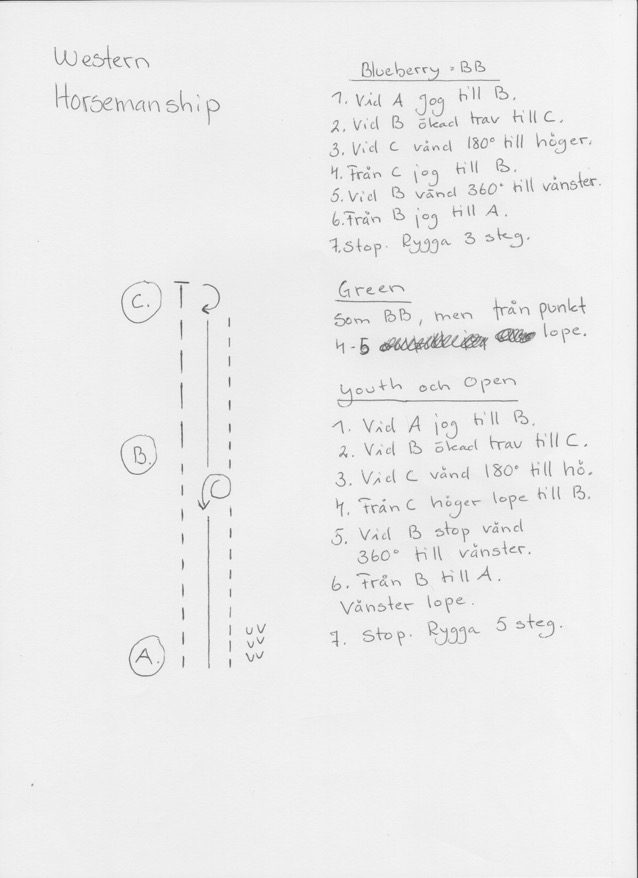 Western
Horsemanship
Blueberry = BB
1. Vid A jog till B.
2. Vid B ökad trav till C.
3. Vid C vänd 180° till höger.
4. Från C jog till B.
5. Vid B vänd 360° till vänster.
6. Från B jog till A.
7. Stop. Rygga 3 steg.
Green
Som BB, men från punkt
4-5 lope.
Youth och Open
1. Vid A jog till B.
2. Vid B ökad trav till C.
3. Vid C vänd 180° till hö.
4. Från C höger lope till B.
5. Vid B stop vänd
360° till vänster.
6. Från B till A.
Vänster lope.
7. Stop. Rygga 5 steg.
C.
B.
A.